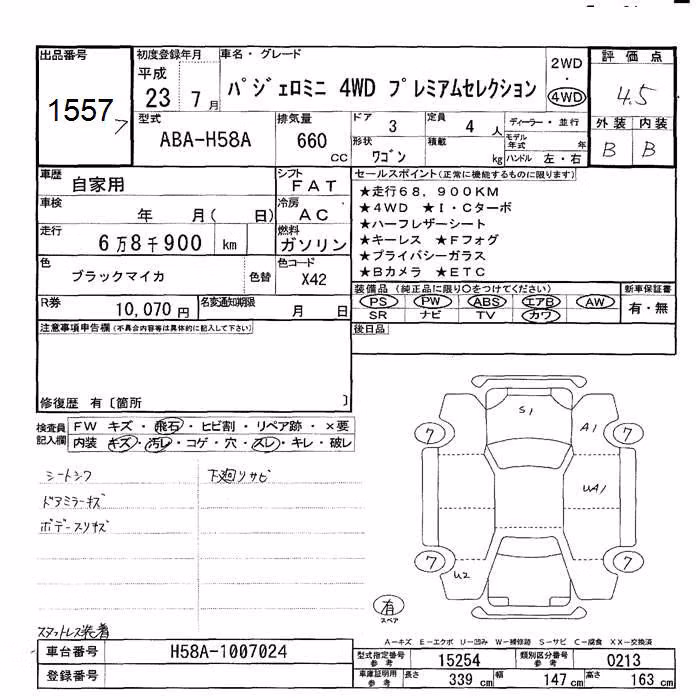 出品番号 初度登録年月 車名・グレード 評価点
1557 平成 23 7月 パジェロミニ 4WD プレミアムセレクション 2WD・4WD 4.5
型式 排気量 ドア 3 定員 4人 ディーラー・並行 外装 内装
ABA-H58A 660cc 形状 ワゴン 積載 kg モデル年式 年 ハンドル 左・右 B B
車歴 自家用 シフト FAT セールスポイント(正常に機能するものに限ります)
車検 年 月( 日) 冷房 AC ★走行68,900KM
★4WD ★I・Cターボ
走行 6万8千900 km 燃料 ガソリン ★ハーフレザーシート
★キーレス ★Fフォグ
色 ブラックマイカ 色替 色コード X42 ★プライバシーガラス
★Bカメラ ★ETC
装備品(純正品に限り○をつけてください) 新車保証書
R券 10,070円 名変通知期限 月 日 PS PW ABS エアB AW 有・無
SR ナビ TV カワ
注意事項申告欄(不具合内容等は具体的に記入して下さい) 後日品
修復歴 有〔箇所 〕
検査員記入欄 FW キズ・飛石・ヒビ割・リペア跡・×要
内装 キズ・汚レ・コゲ・穴・スレ・キレ・破レ
シートシワ 下廻リサビ
ドアミラーキズ
ボデースリキズ
スタットレス装着
S1
7 A1 7
UA1
7 U2 7
有
スペア
A-キズ E-エクボ U-凹み W-補修跡 S-サビ C-腐食 XX-交換済
車台番号 H58A-1007024 型式指定番号 参考 15254 類別区分番号 参考 0213
登録番号 車庫証明用 参考 長さ 339cm 幅 147cm 高さ 163cm